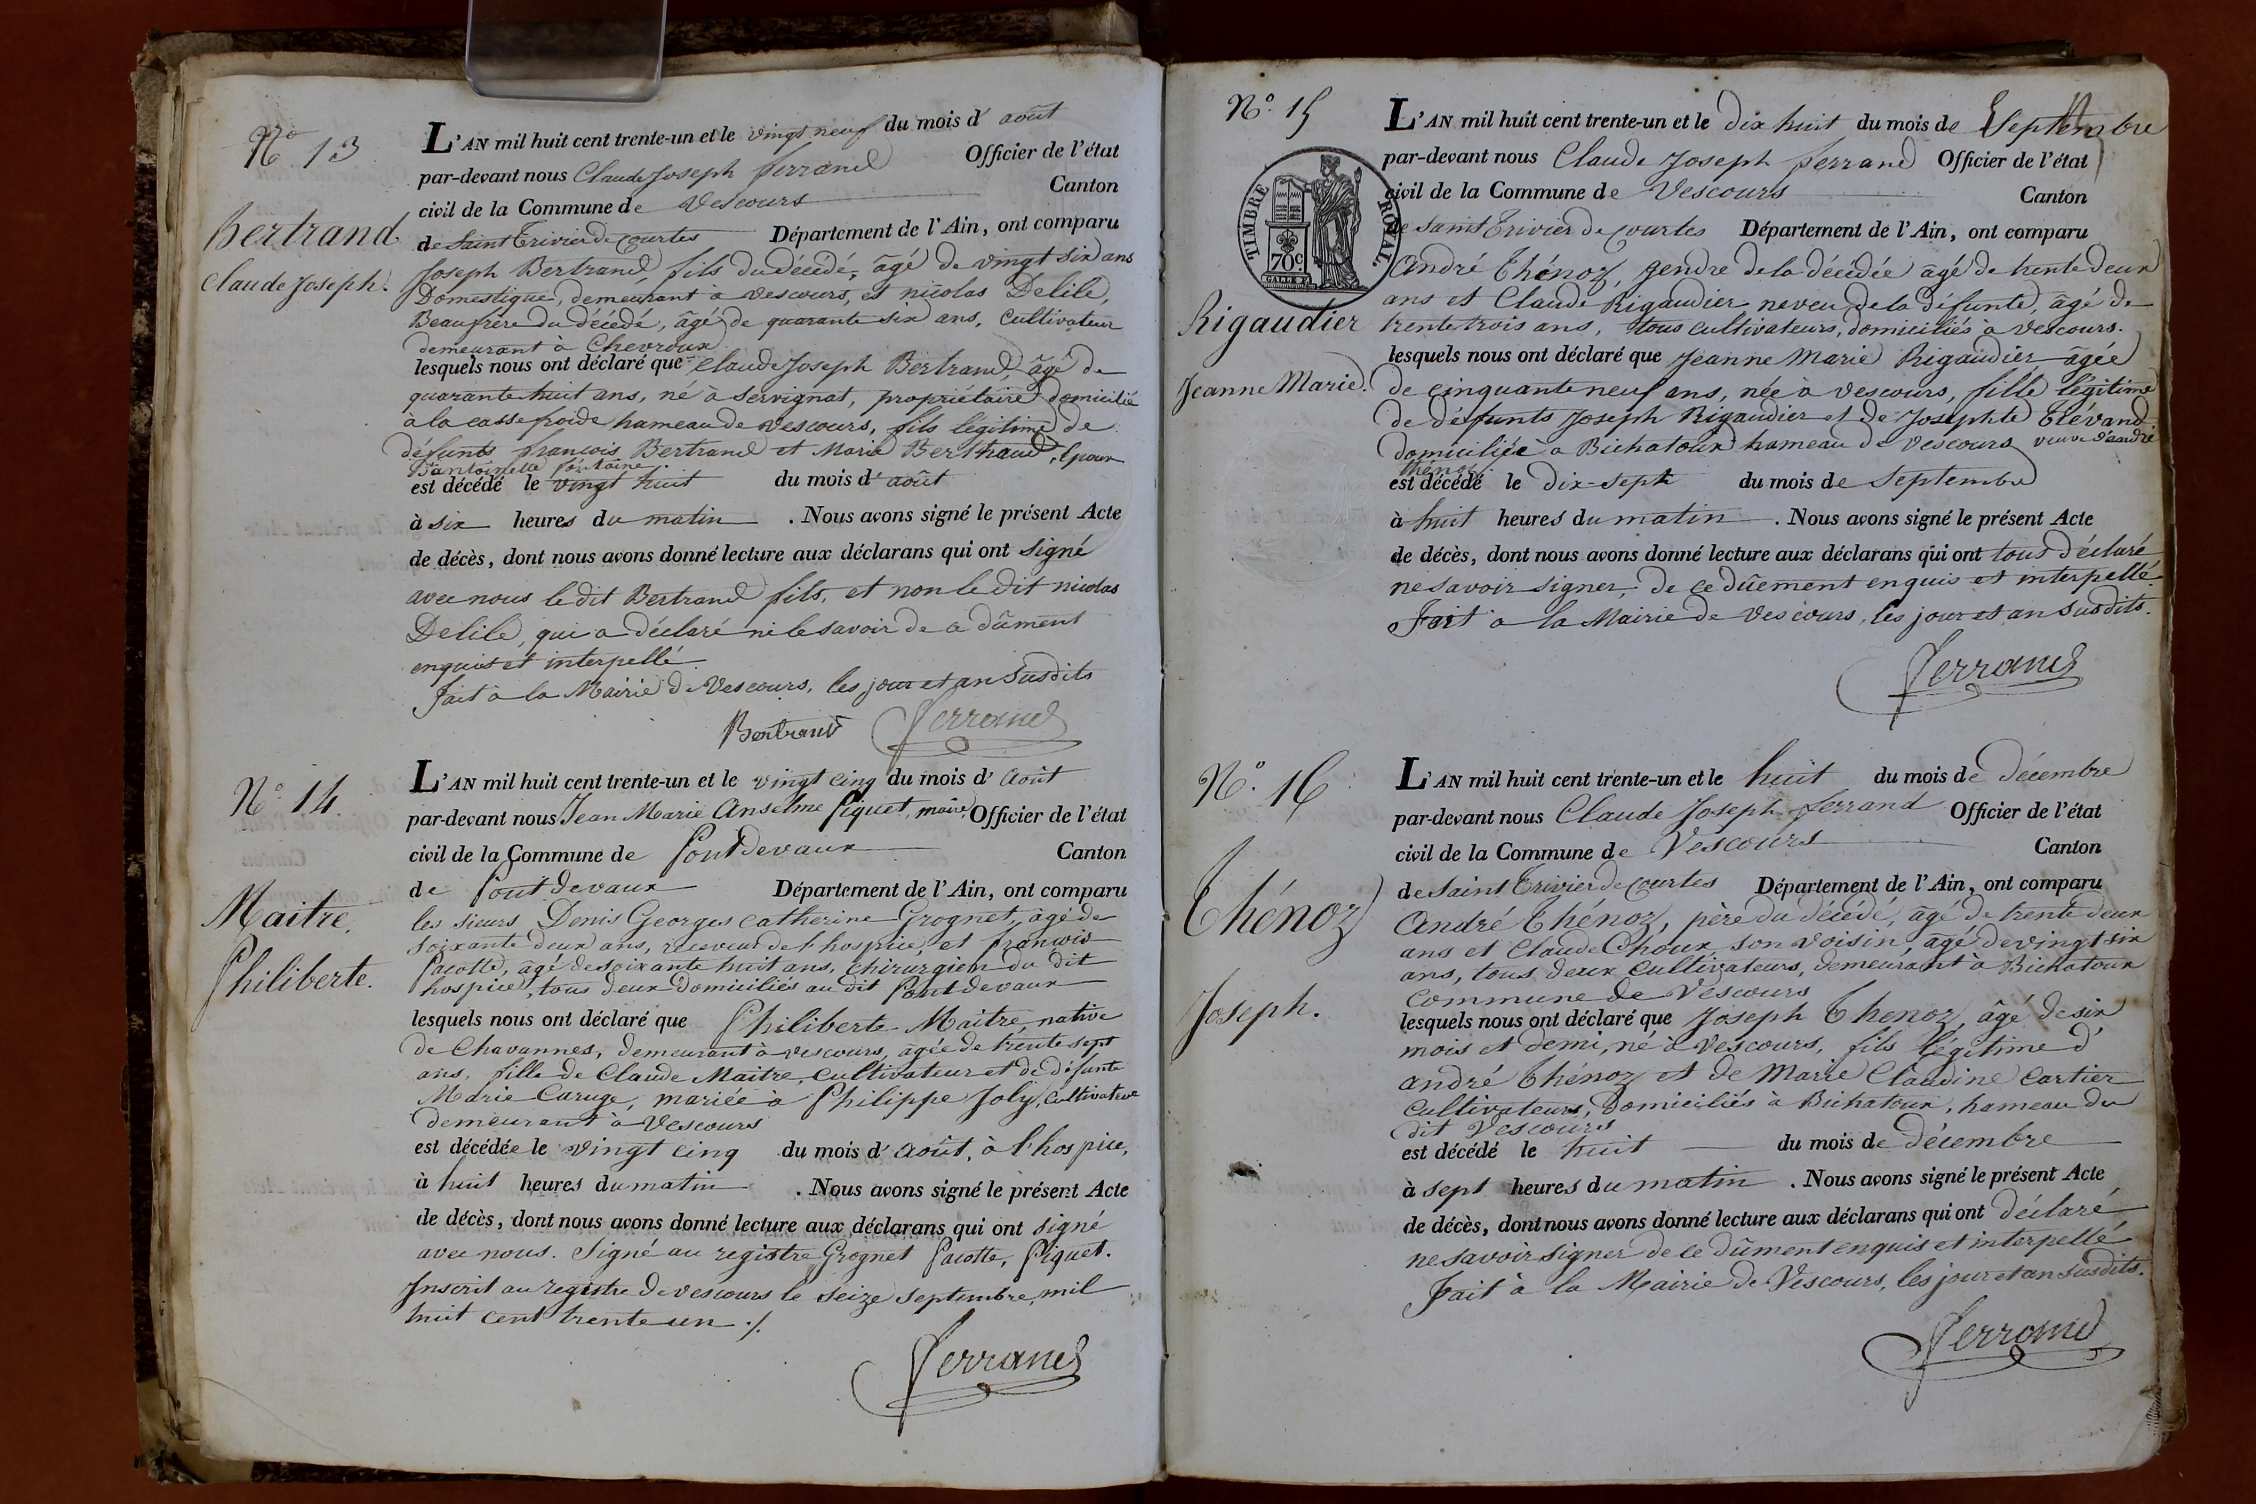 Nº 13
Bertrand
Claude Joseph.
L'AN mil huit cent trente-un et le vingt neuf du mois d'août
par-devant nous Claude Joseph Ferrand Officier de l'état
civil de la Commune de Vescours Canton
de Saint Trivier de Courtes Département de l'Ain, ont comparu
Joseph Bertrand, fils du décédé, âgé de vingt six ans
Domestique, demeurant à Vescours, et nicolas Delile,
Beaufrère du décédé, âgé de quarante six ans, Cultivateur
demeurant à Chevroux
lesquels nous ont déclaré que Claude Joseph Bertrand, âgé de
quarante huit ans, né à Servignat, propriétaire domicilié
à la casse froide hameau de Vescours, fils légitime de
défunts françois Bertrand et Marie Berthaud, Epoux
D'antoinette fontaine.
est décédé le vingt huit du mois d'août
à six heures du matin . Nous avons signé le présent Acte
de décès, dont nous avons donné lecture aux déclarans qui ont signé
avec nous le dit Bertrand fils, et non le dit nicolas
Delile, qui a déclaré ne le savoir de ce dûment
enquis et interpellé
Fait à la Mairie de Vescours, les jour et an susdits
Bertrand Ferrand
Nº 14.
Maitre,
Philiberte.
L'AN mil huit cent trente-un et le vingt cinq du mois d'Août
par-devant nous Jean Marie Anselme Piquet, maire, Officier de l'état
civil de la Commune de Pontdevaux Canton
de Pont devaux Département de l'Ain, ont comparu
les sieurs Denis Georges Catherine Grognet, âgé de
soixante deux ans, receveur de l'hospice, et françois
Pacotte, âgé de soixante huit ans, chirurgien du dit
hospice, tous deux domiciliés au dit Pont devaux
lesquels nous ont déclaré que Philiberte Maitre, native
de Chavannes, demeurant à Vescours, âgée de trente sept
ans, fille de Claude Maitre, Cultivateur et de défunte
Marie Caruge, mariée à Philippe Joly, Cultivateur
demeurant à Vescours
est décédée le vingt cinq du mois d'Août, à l'hospice,
à huit heures du matin . Nous avons signé le présent Acte
de décès, dont nous avons donné lecture aux déclarans qui ont signé
avec nous. Signé au registre Grognet Pacotte, Piquet.
Inscrit au registre de vescours le seize septembre, mil
huit cent trente un ./.
Ferrand
Nº 15
TIMBRE ROYAL
70 c.
Rigaudier
Jeanne Marie.
L'AN mil huit cent trente-un et le dix huit du mois de Septembre
par-devant nous Claude Joseph Ferrand Officier de l'état
civil de la Commune de Vescours Canton
de Saint Trivier de Courtes Département de l'Ain, ont comparu
André Thénoz, gendre de la décédée âgé de trente deux
ans et Claude Rigaudier neveu de la défunte, âgé de
trente trois ans, tous cultivateurs, domiciliés à Vescours.
lesquels nous ont déclaré que Jeanne Marie Rigaudier âgée
de cinquante neuf ans, née à Vescours, fille légitime
de défunts Joseph Rigaudier et de Josephte Trévand
domiciliée à Bichatoux hameau de Vescours veuve d'andré
Thénoz
est décédé le dix-sept du mois de Septembre
à huit heures du matin . Nous avons signé le présent Acte
de décès, dont nous avons donné lecture aux déclarans qui ont tous déclaré
ne savoir signer, de ce dûement enquis et interpellé
Fait à la Mairie de Vescours, les jour et an susdits.
Ferrand
Nº 16
Thénoz
Joseph.
L'AN mil huit cent trente-un et le huit du mois de décembre
par-devant nous Claude Joseph Ferrand Officier de l'état
civil de la Commune de Vescours Canton
de Saint Trivier de Courtes Département de l'Ain, ont comparu
André Thénoz, père du décédé, âgé de trente deux
ans et Claude Choux son voisin, âgé de vingt six
ans, tous deux cultivateurs, demeurant à Bichatoux
Commune de Vescours
lesquels nous ont déclaré que Joseph Thenoz, âgé de six
mois et demi, né à Vescours, fils légitime d'
andré Thénoz et de Marie Claudine Cartier
Cultivateurs, Domiciliés à Bichatoux, hameau du
dit Vescours
est décédé le huit du mois de décembre
à sept heures du matin . Nous avons signé le présent Acte
de décès, dont nous avons donné lecture aux déclarans qui ont déclaré
ne savoir signer de ce dûment enquis et interpellé
Fait à la Mairie de Vescours, les jour et an susdits.
Ferrand